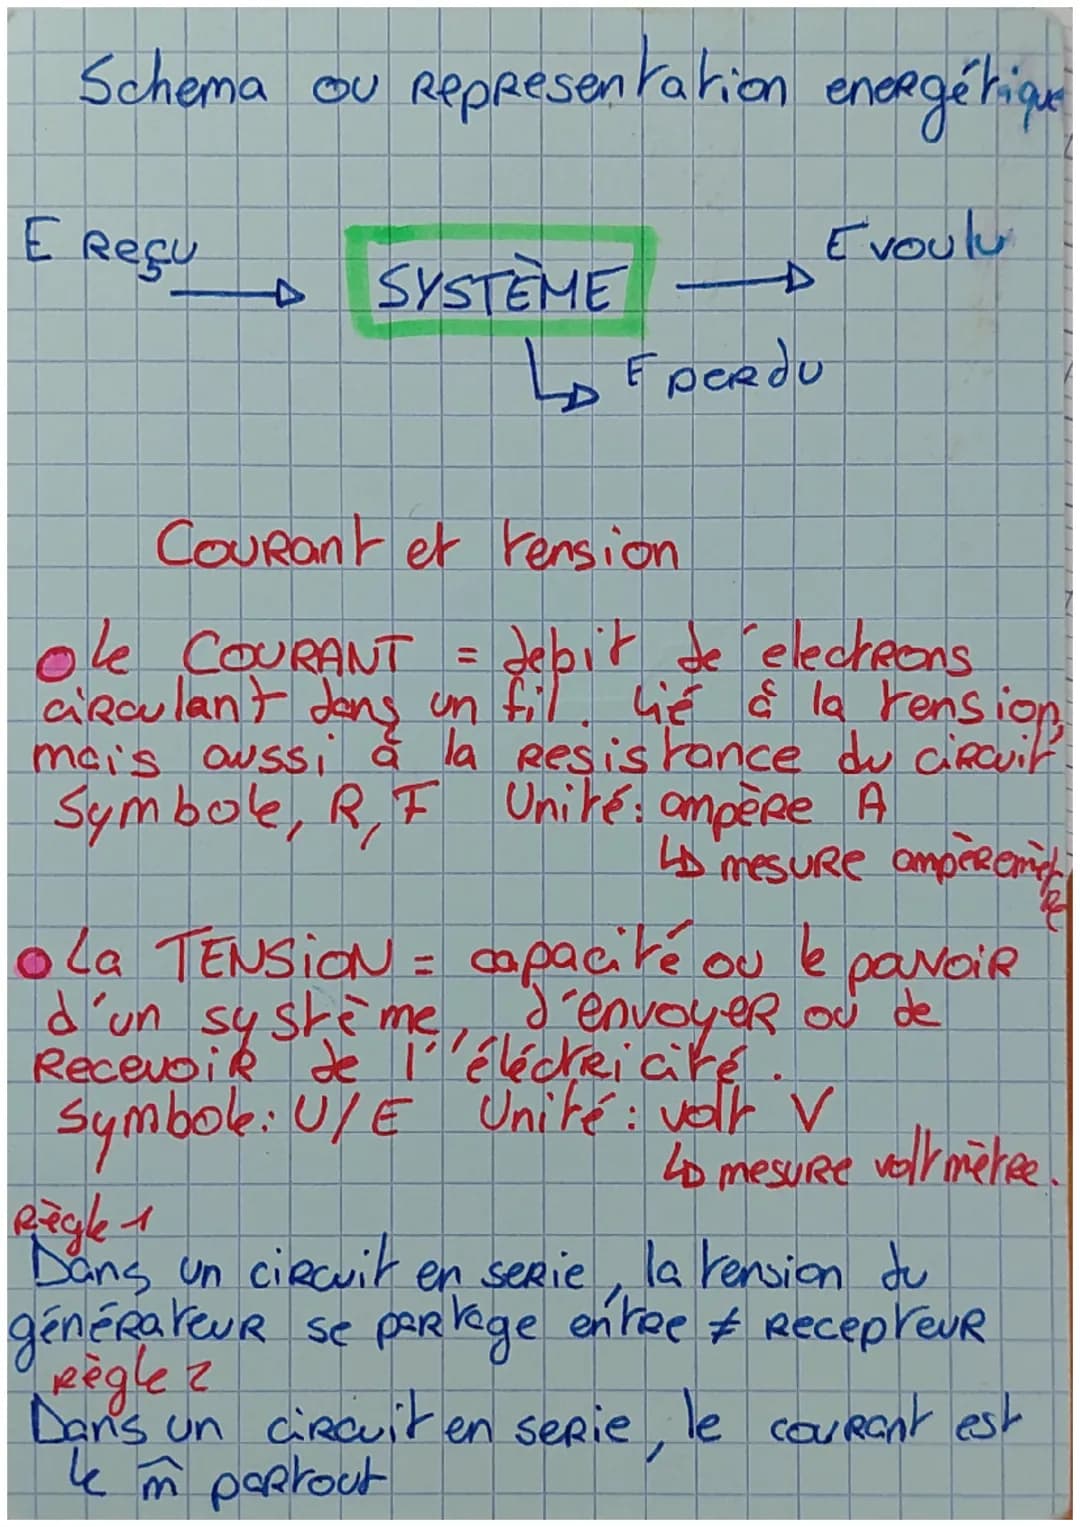 Schema ou representation energétique
E Reçu
SYSTÈME
E voulu
E perdu
Courant et tension
le COURANT = debit de électrons
circulant dans un fil. lié à la tension,
mais aussi à la resistance du circuit
Symbole, R, F Unité: ampère A
mesure ampèremètre
La TENSION = capacité ou le pouvoir
d'un système, d'envoyer ou de
Recevoir de l'éléctricité.
Symbole: U/E Unité: volt V
mesure voltmètre.
Règle 1
Dans un circuit en serie, la tension du
générateur se partage entre ≠ Recepteur
Règle 2
Dans un circuit en serie, le courant est
le m̂ partout